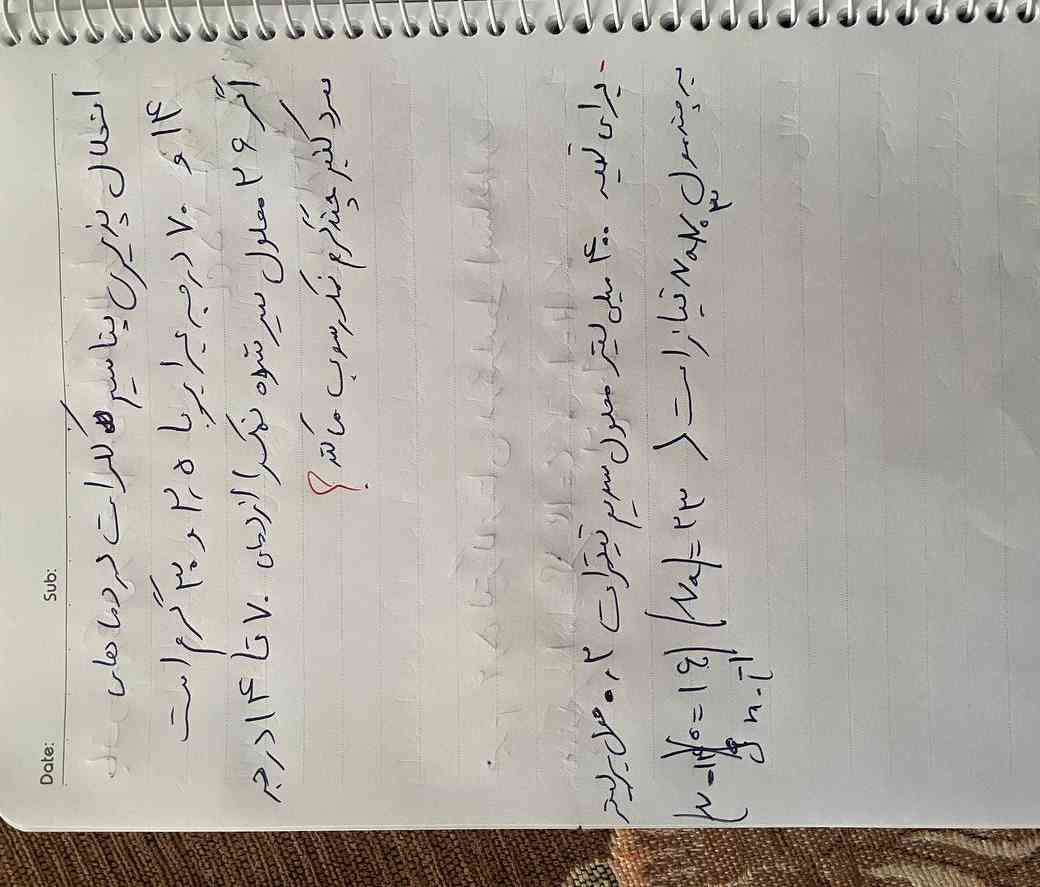 Date: Sub:
انحلال پذیری پتاسیم کلرات در دما های
۱۴ و ۷۰ درجه برابر با ۲,۵ و ۳۰ گرم است
اگر ۲۶ محلول سیر شده نمک را از دمای ۷۰ تا ۱۴ درجه
سرد کنیم چند گرم نمک رسوب می کند؟
- برای تهیه ۴۰۰ میلی لیتر محلول سدیم نیترات ۰,۲ مول بر لیتر
به چند مول NaNo۳ نیاز است (Na=۲۳) (o=۱۶) (N=۱۴)
g n-1